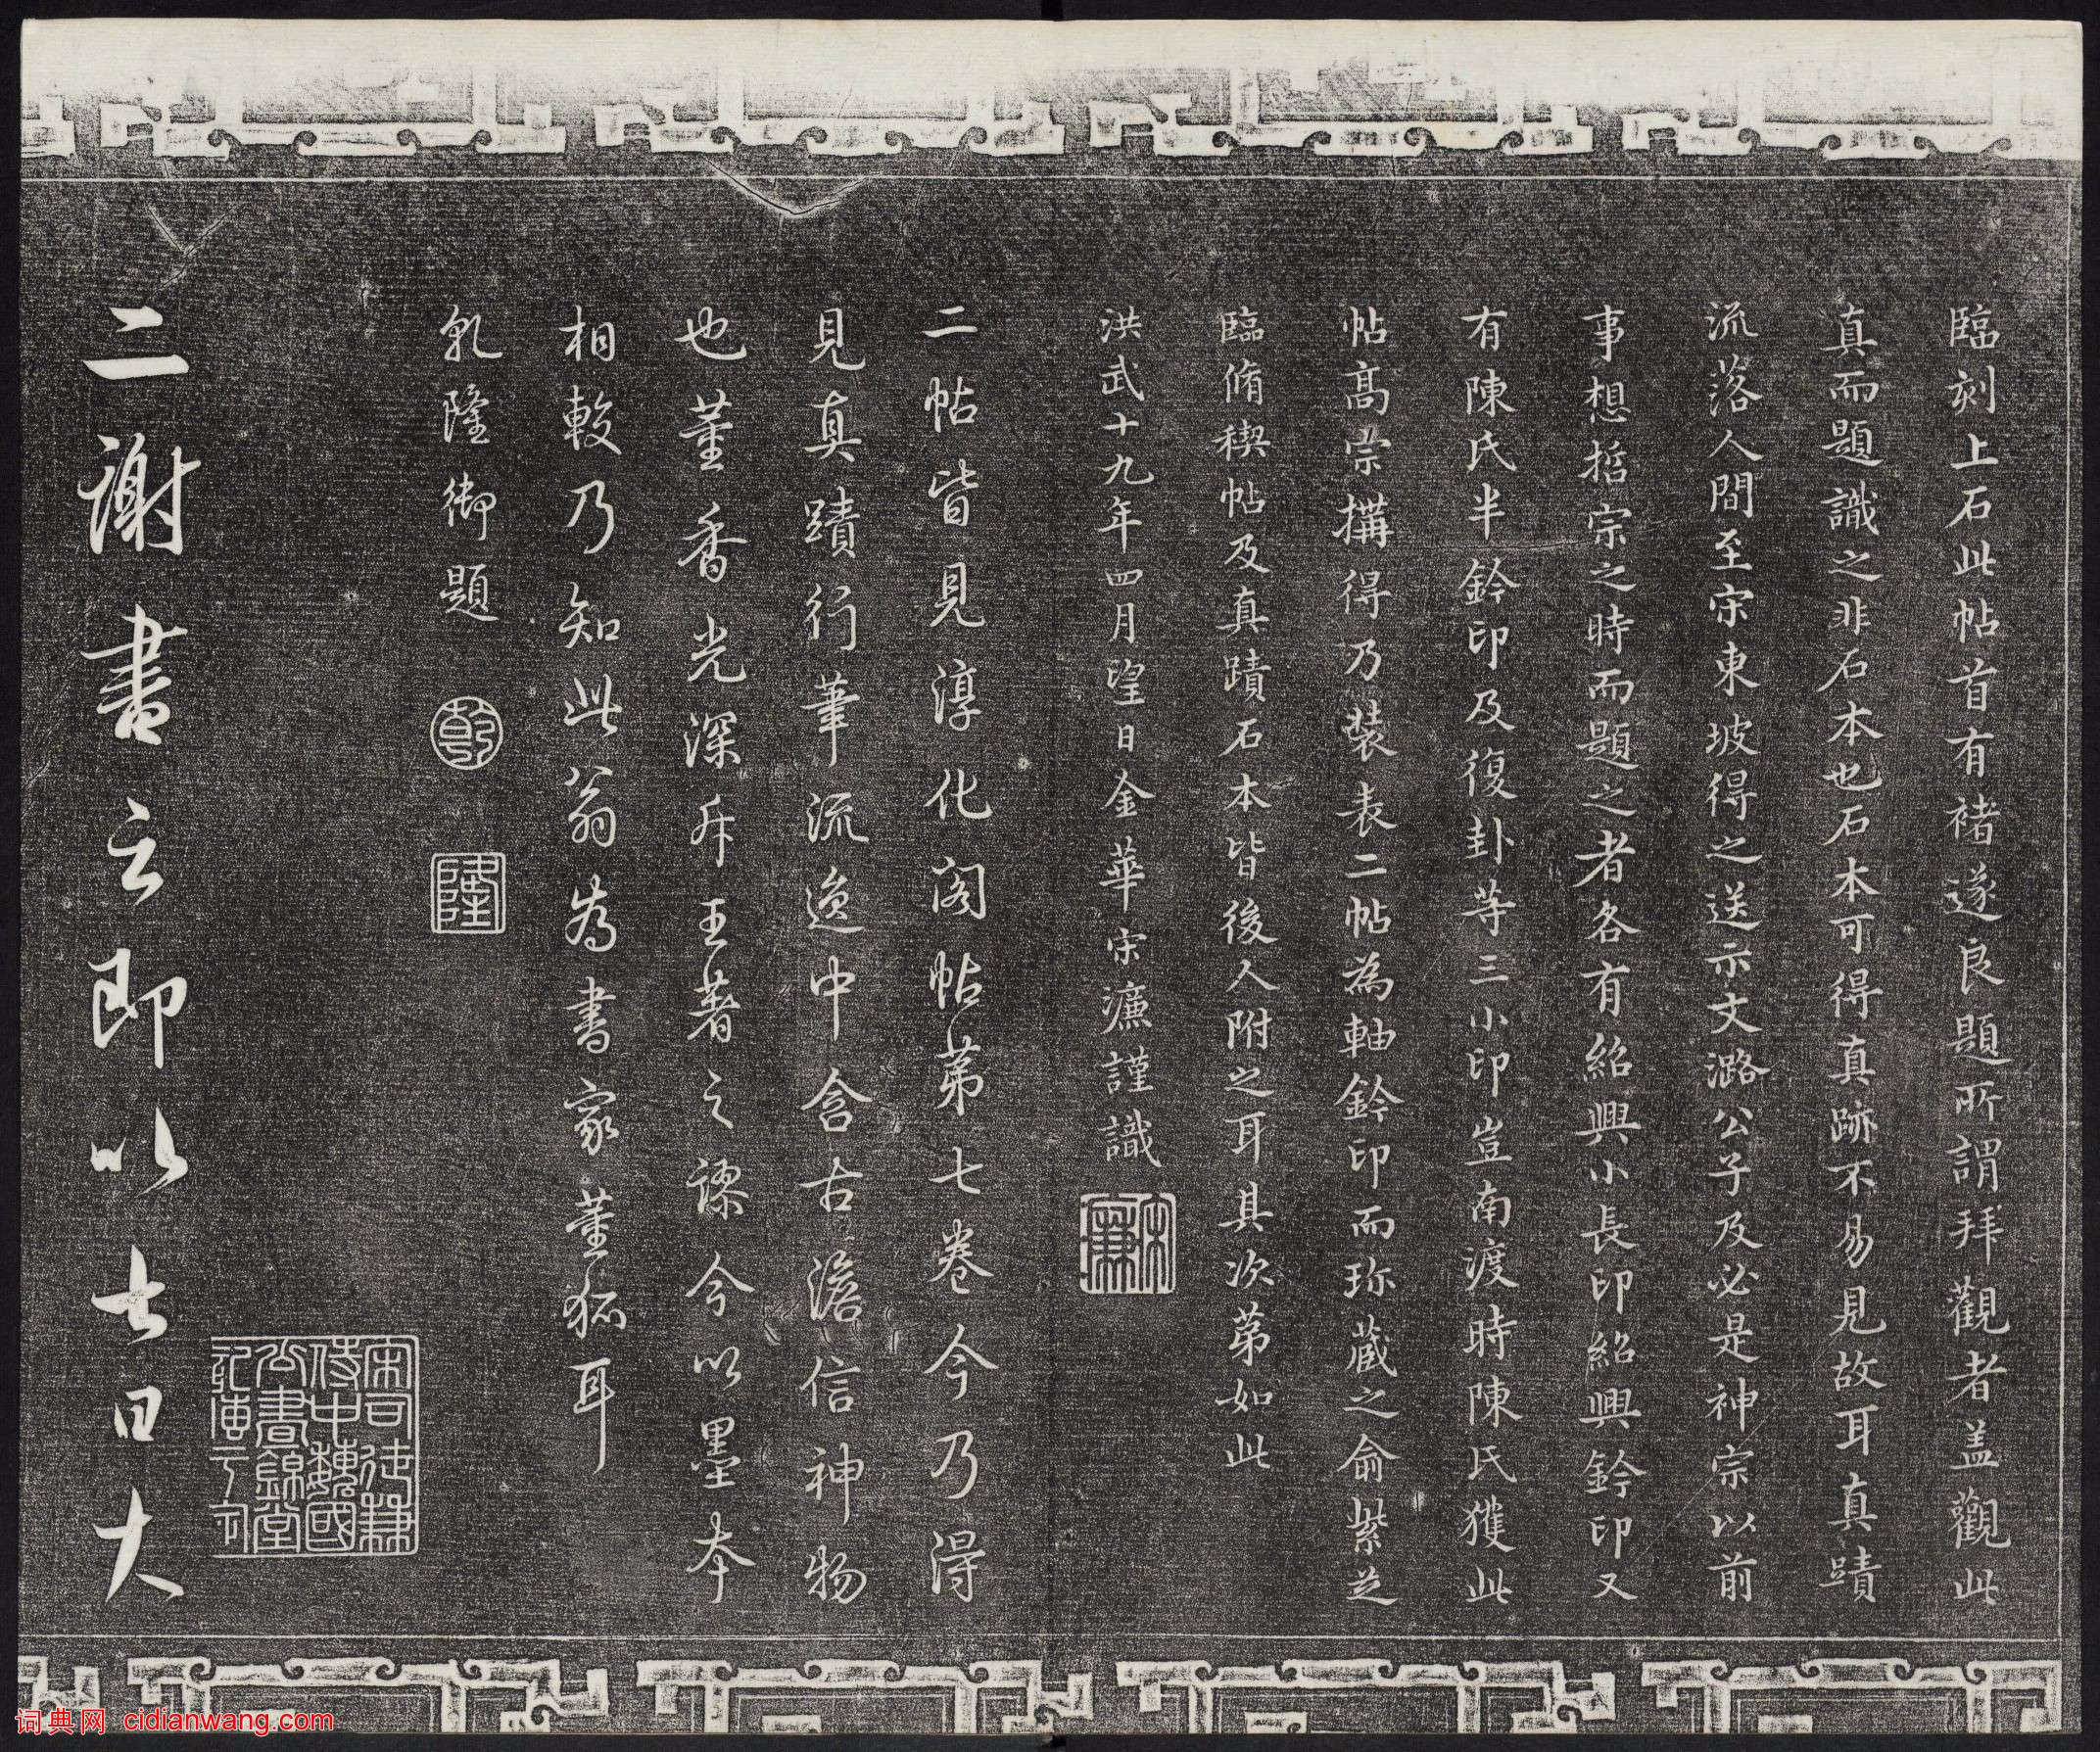 臨刻上石此帖首有褚遂良題所謂拜觀者盖觀此
真而題識之非石本也石本可得真跡不易見故耳真蹟
流落人間至宋東坡得之送示文潞公子及必是神宗以前
事想哲宗之時而題之者各有紹興小長印紹興鈐印又
有陳氏半鈐印及復卦等三小印豈南渡時陳氏獲此
帖高宗搆得乃裝表二帖為軸鈐印而珎藏之俞紫芝
臨脩稧帖及真蹟石本皆後人附之耳具次苐如此
洪武十九年四月望日金華宋濂謹識
宋濂
二帖皆見淳化阁帖苐七卷今乃得
見真蹟行筆流逸中含古澹信神物
也董香光深斥王著之謬今以墨本
相較乃知此翁為書家董狐耳
乹隆御題
乾
隆
宋司徒兼
侍中魏國
公晝錦堂
記
二謝書云即以七日大
词典网 cidianwang.com